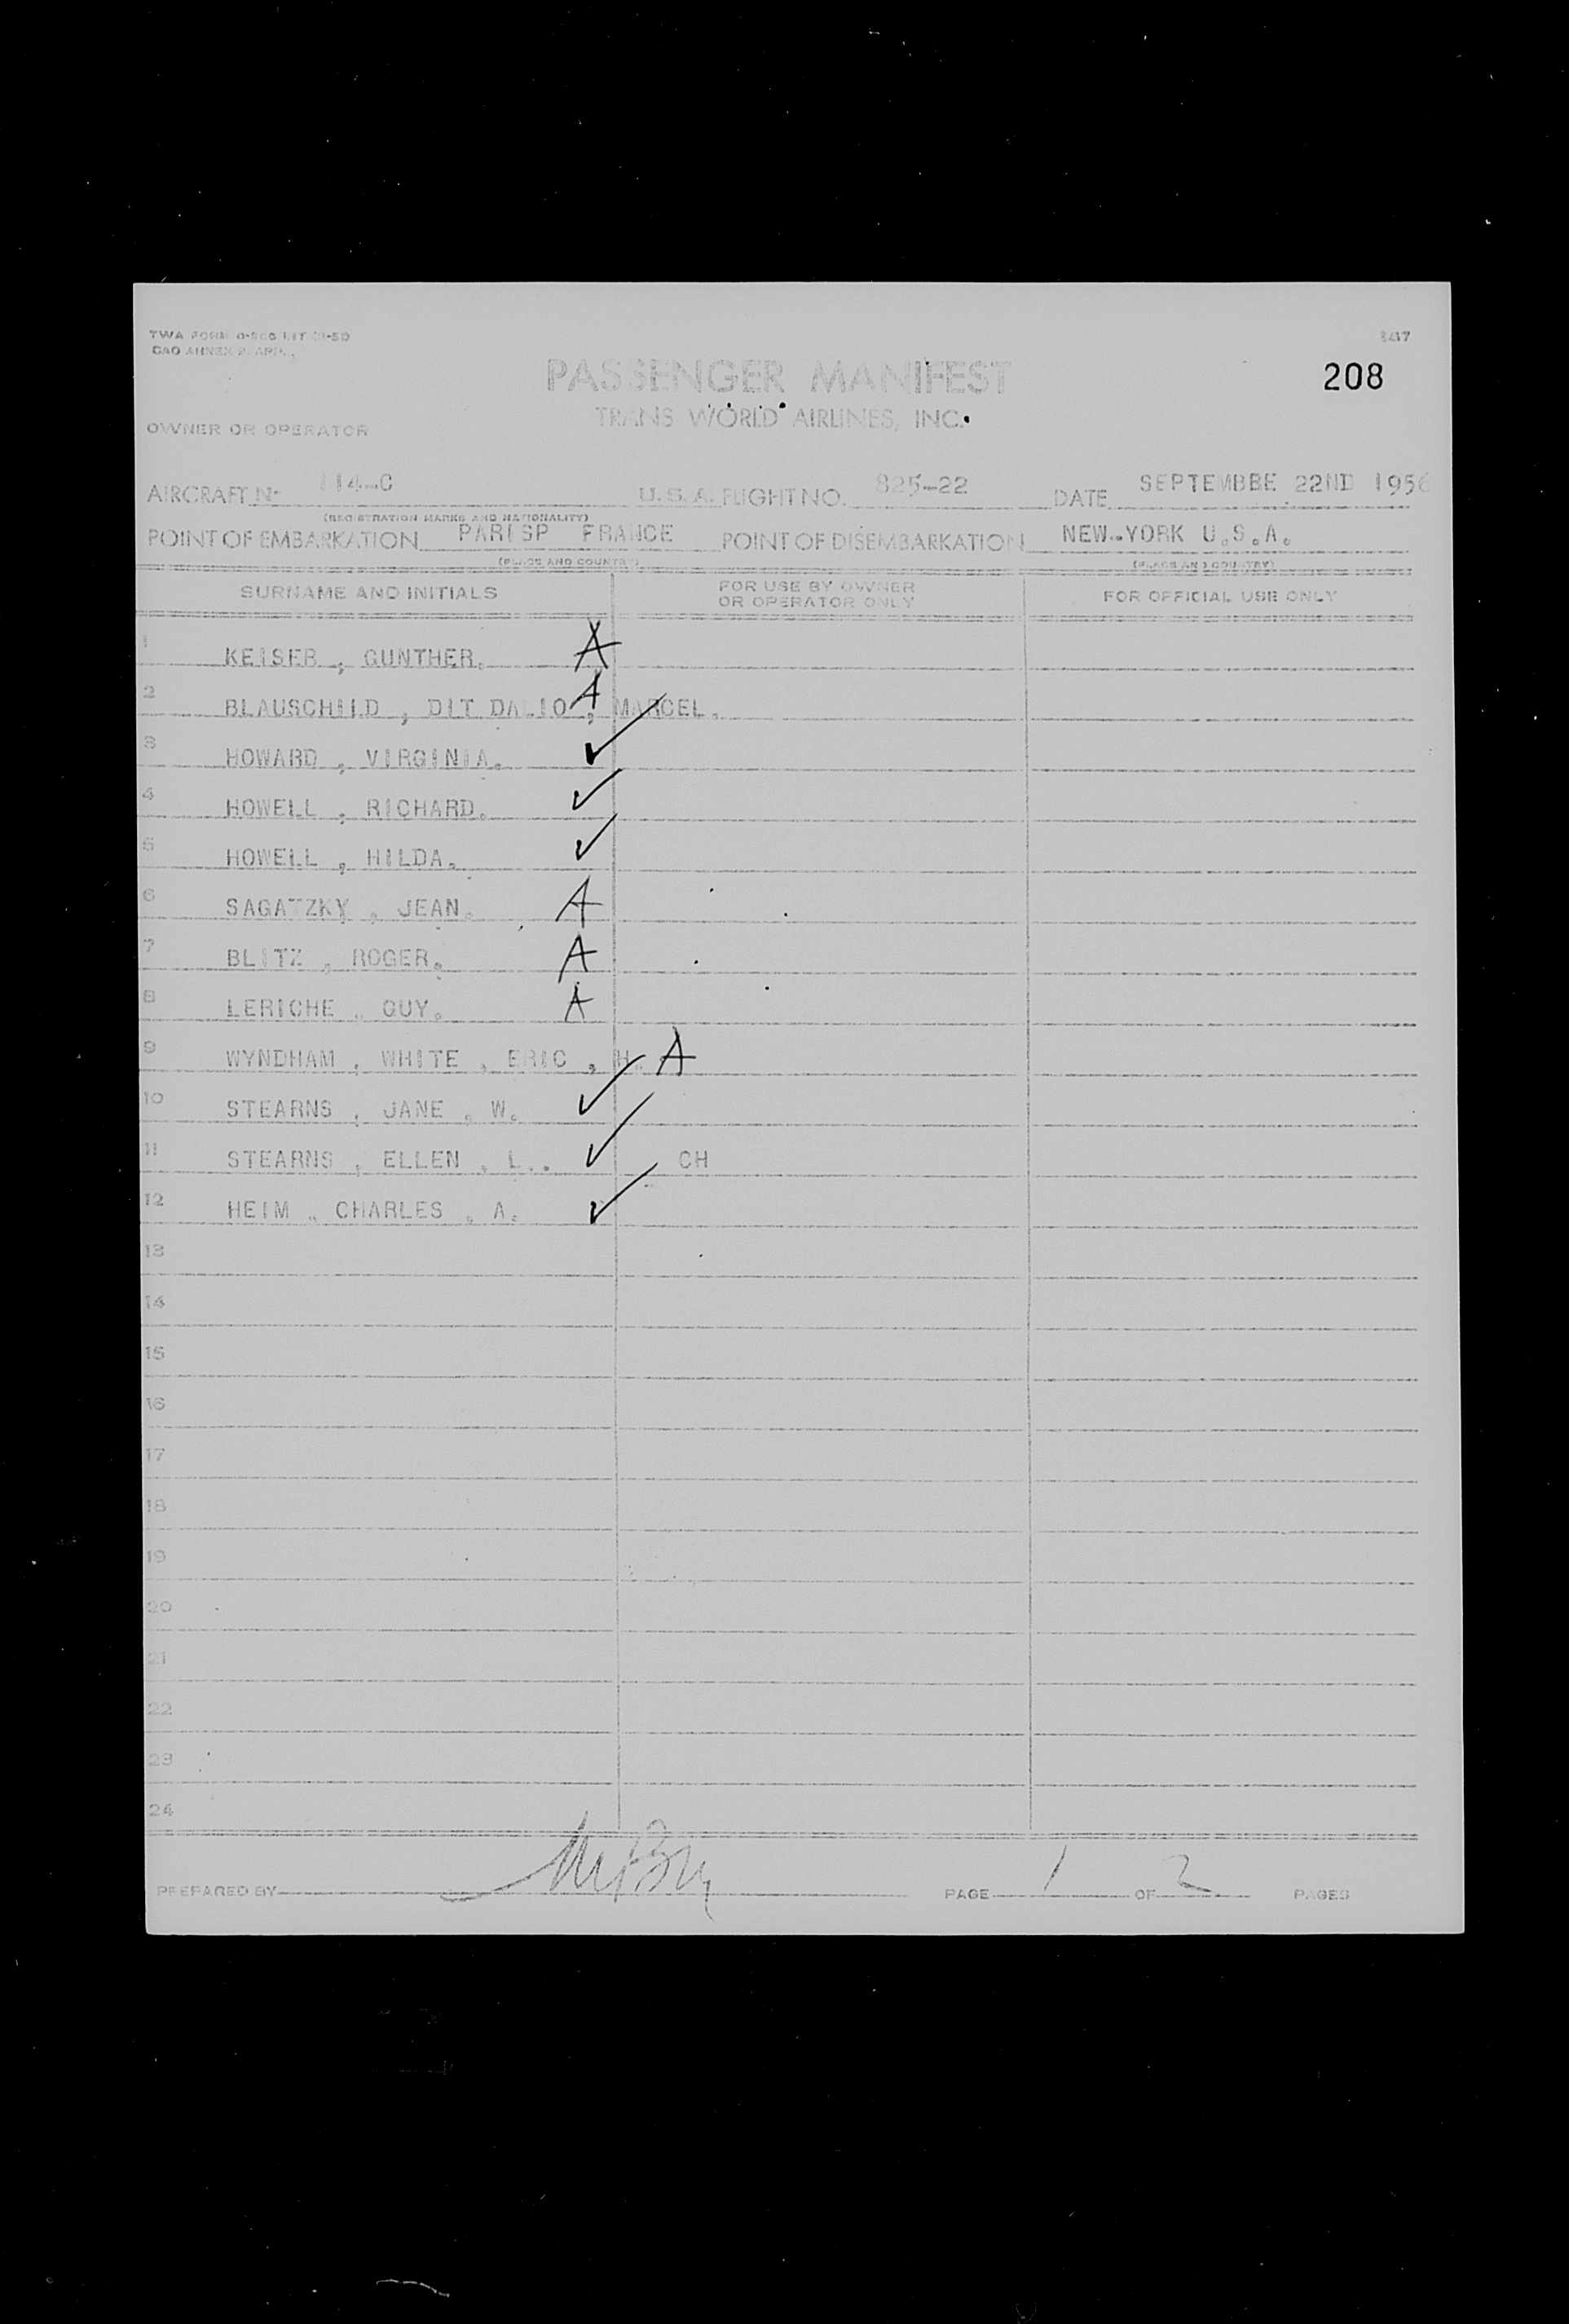 TWA FORM
3417
PASSENGER MANIFEST
208
TRANS WORLD AIRLINES, INC.
OWNER OR OPERATOR
AIRCRAFT Nº 114-C U.S.A. FLIGHT NO. 825-22 DATE SEPTEMBBE 22ND 1956
(REGISTRATION MARKS AND NATIONALITY)
POINT OF EMBARKATION PARISP FRANCE POINT OF DISEMBARKATION NEW-YORK U.S.A.
(PLACE AND COUNTRY) (PLACE AND COUNTRY)
SURNAME AND INITIALS FOR USE BY OWNER OR OPERATOR ONLY FOR OFFICIAL USE ONLY
1 KEISER , GUNTHER. A
2 BLAUSCHILD , DIT DALIO , MARCEL. A
3 HOWARD , VIRGINIA. ✓
4 HOWELL , RICHARD. ✓
5 HOWELL , HILDA. ✓
6 SAGATZKY , JEAN. A
7 BLITZ , ROGER. A
8 LERICHE , GUY. A
9 WYNDHAM , WHITE , ERIC , H. A
10 STEARNS , JANE , W. ✓
11 STEARNS , ELLEN , L.. ✓ CH
12 HEIM , CHARLES , A. ✓
13
14
15
16
17
18
19
20
21
22
23
24
PREPARED BY PAGE 1 OF 2 PAGES